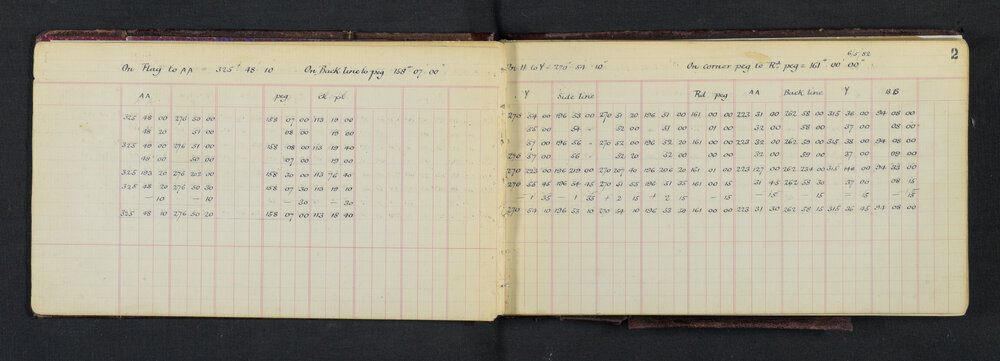 On Flag to AA = 325° 48' 10" On Back line to peg 158° 07' 00"
AA peg ck pl
325 48 00 276 50 00 158 07 00 113 19 00
48 20 51 00 08 00 19 00
325 49 00 276 51 00 158 08 00 113 19 40
48 00 50 00 07 00 19 00
325 193 20 276 202 00 158 30 00 113 76 40
325 48 20 276 50 30 158 07 30 113 19 10
— 10 — 10 — 30 — 30
325 48 10 276 50 20 158 07 00 113 18 40
6/5/82
2
On H to Y = 270° 54' 10" On corner peg to Rd peg = 161° 00' 00"
Y Side line Rd peg AA Back line Y BB
270 54 00 196 53 00 270 51 20 196 51 00 161 00 00 223 31 00 262 58 00 315 36 00 94 08 00
55 00 54 - 52 00 51 00 01 00 32 00 58 00 37 00 08 00
57 00 196 56 - 270 52 00 196 52 20 161 00 00 223 32 00 262 59 00 315 38 00 94 08 00
270 57 00 56 - 52 20 52 00 00 00 32 00 59 00 37 00 09 00
270 223 00 196 219 00 270 207 40 196 206 20 161 01 00 223 127 00 262 234 00 315 148 00 94 33 00
270 55 45 196 54 45 270 51 55 196 51 35 161 00 15 31 45 262 58 30 37 00 08 15
— 1 35 — 1 35 + 2 15 + 2 15 — 15 — 15 — 15 — 15 — 15
270 54 10 196 53 10 270 54 10 196 53 50 161 00 00 223 31 30 262 58 15 315 36 45 94 08 00